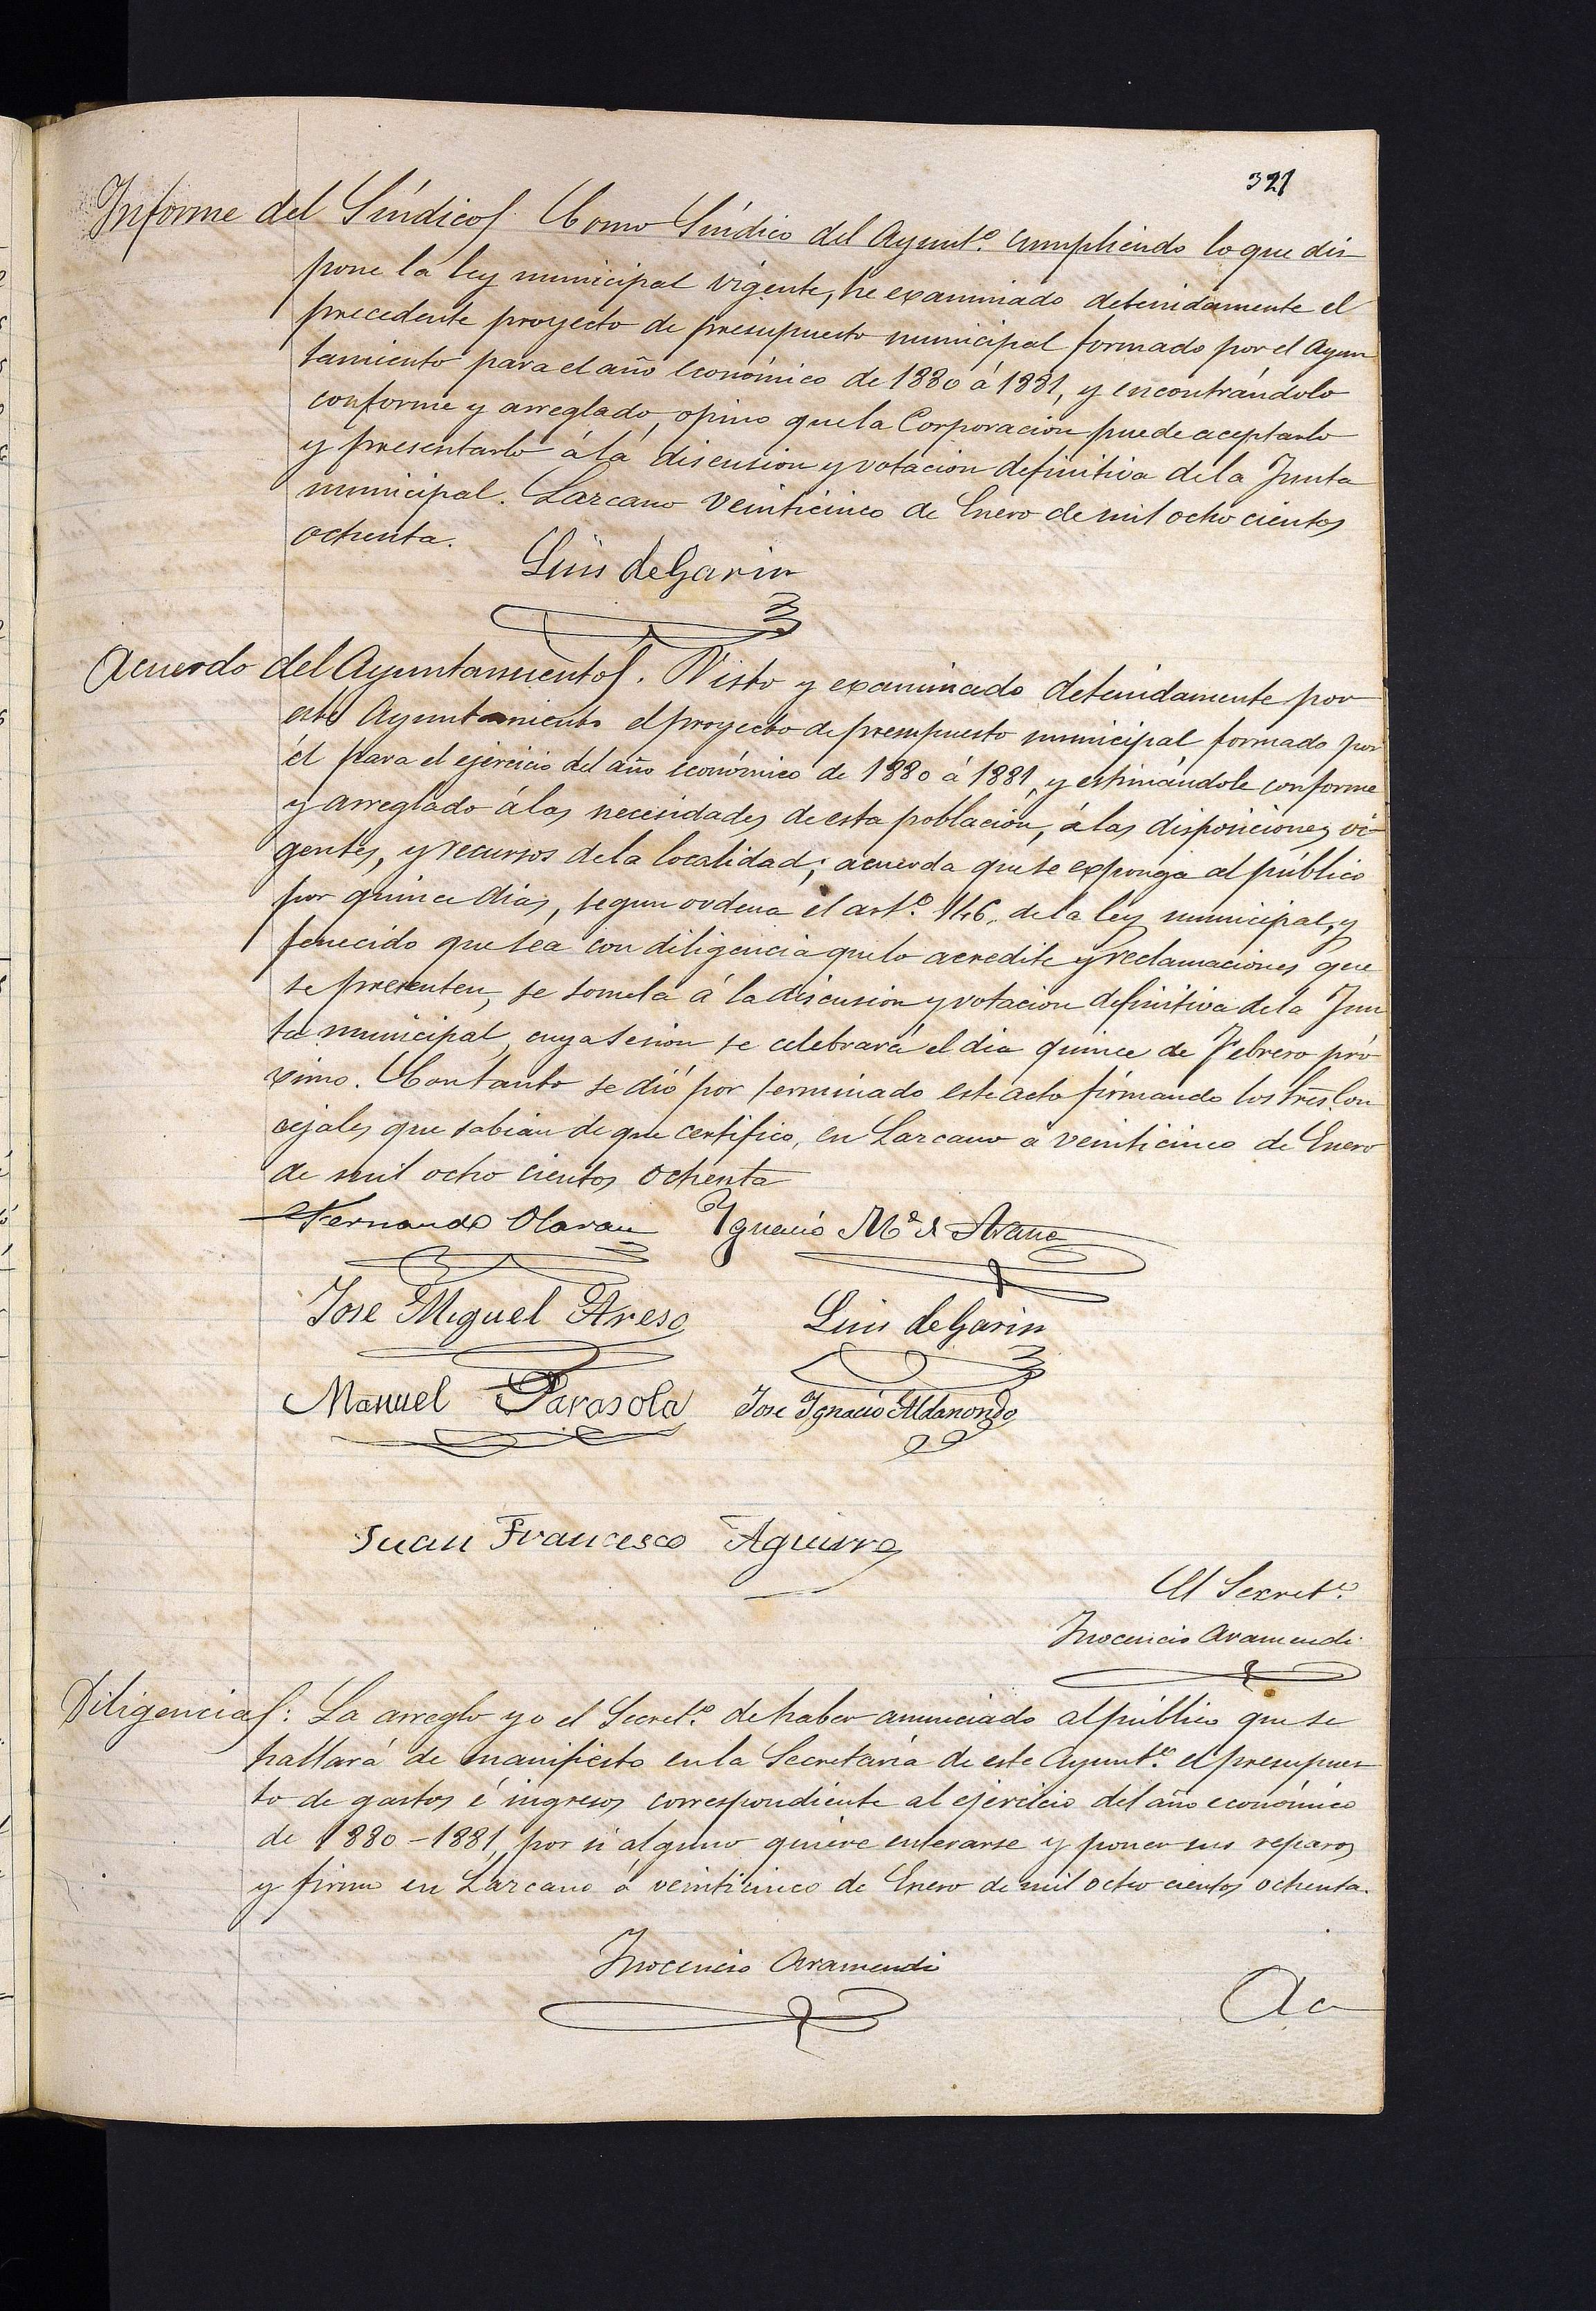 321
Informe del Síndico. Como Síndico del Ayunt.º cumpliendo lo que dis
pone la ley municipal vigente, he examinado detenidamente el
precedente proyecto de presupuesto municipal formado por el Ayun
tamiento para el año económico de 1880 á 1881, y encontrándolo
conforme y arreglado, opino que la Corporacion puede aceptarlo
y presentarlo á la discusion y votacion definitiva de la Junta
municipal. Lazcano veinticinco de Enero de mil ocho cientos
ochenta.
Luis de Garin
Acuerdo del Ayuntamiento. Visto y examinado detenidamente por
este Ayuntamiento el proyecto de presupuesto municipal formado por
él para el ejercicio del año económico de 1880 á 1881, y estimándole conforme
y arreglado á las necesidades de esta poblacion, á las disposiciones vi-
gentes, y recursos de la localidad; acuerda que se exponga al público
por quince dias, segun ordena el art.º 146, de la ley municipal, y
fenecido que sea con diligencia que lo acredite y reclamaciones que
se presenten, se someta á la discusion y votacion definitiva de la Jun
ta municipal, cuya sesion se celebrará el dia quince de Febrero pró
ximo. Con tanto se dió por terminado este acto firmando los Sres Con
cejales que sabian de que certifico, en Lazcano á veinticinco de Enero
de mil ocho cientos ochenta
Fernando Olaran Ignacio M.ª de Arana
Jose Miguel Areso Luis de Garin
Manuel Parasola Jose Ignacio Aldanondo
Juan Francisco Aguirre
El Secret.º
Inocencio Aramendi
Diligencia: La arreglo yo el Secret.º de haber anunciado al público que se
hallará de manifiesto en la Secretaría de este Ayunt.º el presupues
to de gastos é ingresos correspondiente al ejercicio del año económico
de 1880-1881, por si alguno quiere enterarse y poner sus reparos
y firmo en Lazcano á veinticinco de Enero de mil ocho cientos ochenta.
Inocencio Aramendi
Ac